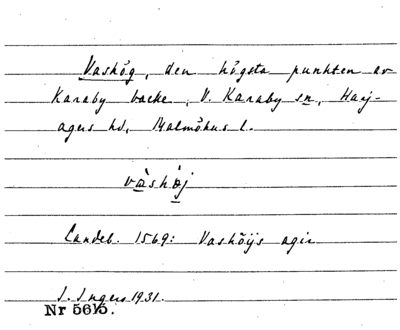 Vashög, den högsta punkten av
Karaby backe, V. Karaby sn, Harj-
agers hd, Malmöhus l.
vàshòj
Landeb. 1569: Vashöijs agir
I. Ingers 1931.
Nr 5615.